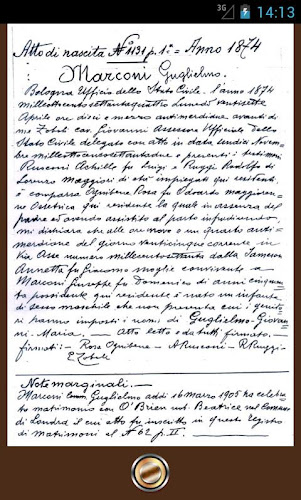 3G 14:13
Atto di nascita Nº 1131 p. 1ª = Anno 1874
: Marconi Guglielmo. —
Bologna Ufficio dello Stato Civile. L'anno 1874
milleottocentosettantaquattro Lunedì ventisette
Aprile ore dieci e mezzo antimeridiane avanti di
me Zoboli cav. Giovanni Assessore Ufficiale dello
Stato Civile delegato con atto in data sundici Novem-
bre milleottocentosettantadue e presenti i testimoni
Rusconi Achille fu Luigi e Ruggi Rodolfo di
Lorenzo maggiori di età impiegati qui residenti
è comparsa Ognibene Rosa fu Odoardo maggioren-
ne Ostetrica qui residente la quale in assenza del
padre ed avendo assistito al parto infrascritto,
mi dichiara che alle ore nove e un quarto anti-
meridiane del giorno venticinque corrente, in
Via Asse numero millecentosettanta dalla Jameson
Annetta fu Giacomo moglie convivente a
Marconi Giuseppe fu Domenico di anni cinquan-
ta possidente qui residente è nato un infante
di sesso maschile che non presenta cui i genito-
ri hanno imposti i nomi di Guglielmo-Giovan-
ni-Maria. — Atto letto e da tutti firmato. —
firmati: — Rosa Ognibene — A. Rusconi — R. Ruggi —
Zoboli
Note marginali. —
Marconi Guglielmo addì 16 marzo 1905 ha celebra-
to matrimonio con O'Brien Beatrice nel Comune
di Londra il cui atto fu inscritto in questo Registro
di Matrimoni al Nº 62 p. II. —